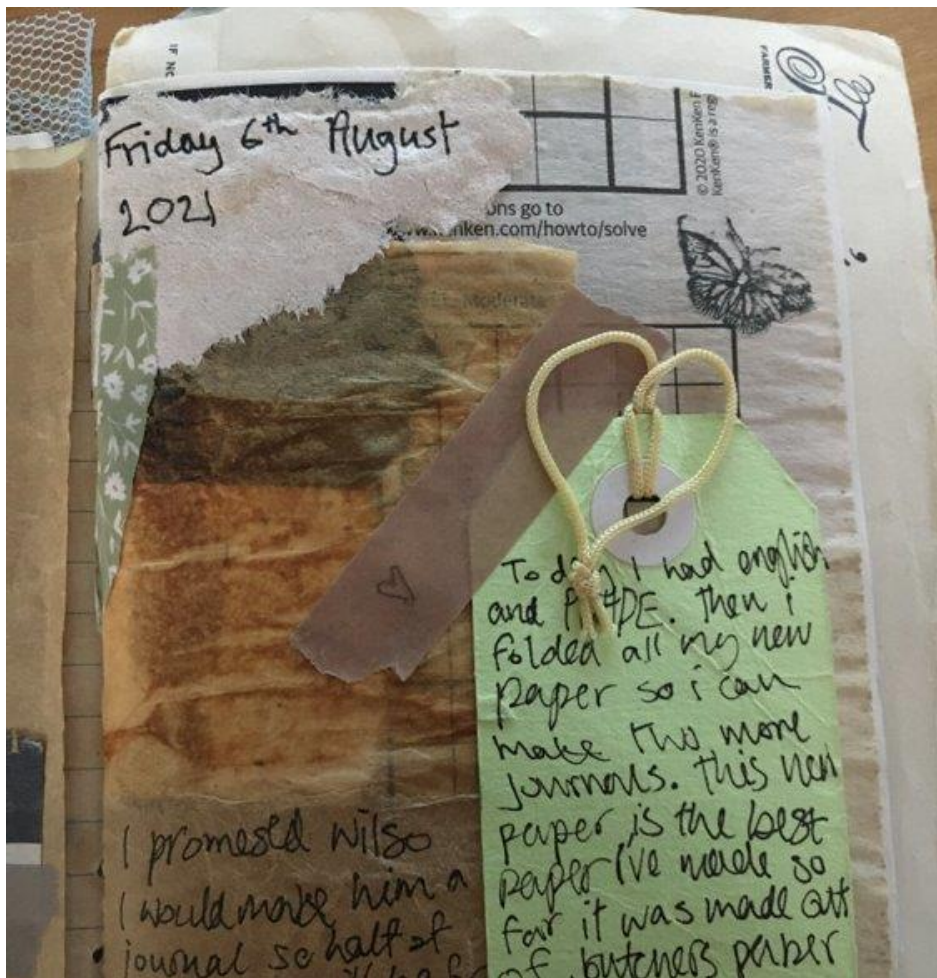 IF NO
FARMER
Friday 6th August
2021
© 2020 KenKen P
KenKen® is a reg
ons go to
w.kenken.com/howto/solve
Moderate
Today I had english
and PDHPE. then i
folded all my new
paper so i can
make two more
journals. this new
paper is the best
paper I've made so
far it was made out
of butchers paper
I promesed wilso
I would make him a
journal so half of